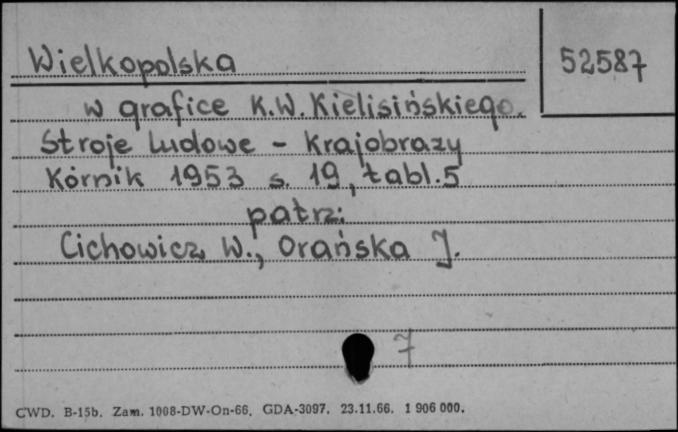 Wielkopolska
52587
w grafice K.W. Kielisińskiego.
Stroje ludowe - krajobrazy
Kórnik 1953 s. 19, tabl. 5
patrz:
Cichowicz W., Orańska J.
7
CWD. B-15b. Zam. 1008-DW-On-66. GDA-3097. 23.11.66. 1 906 000.